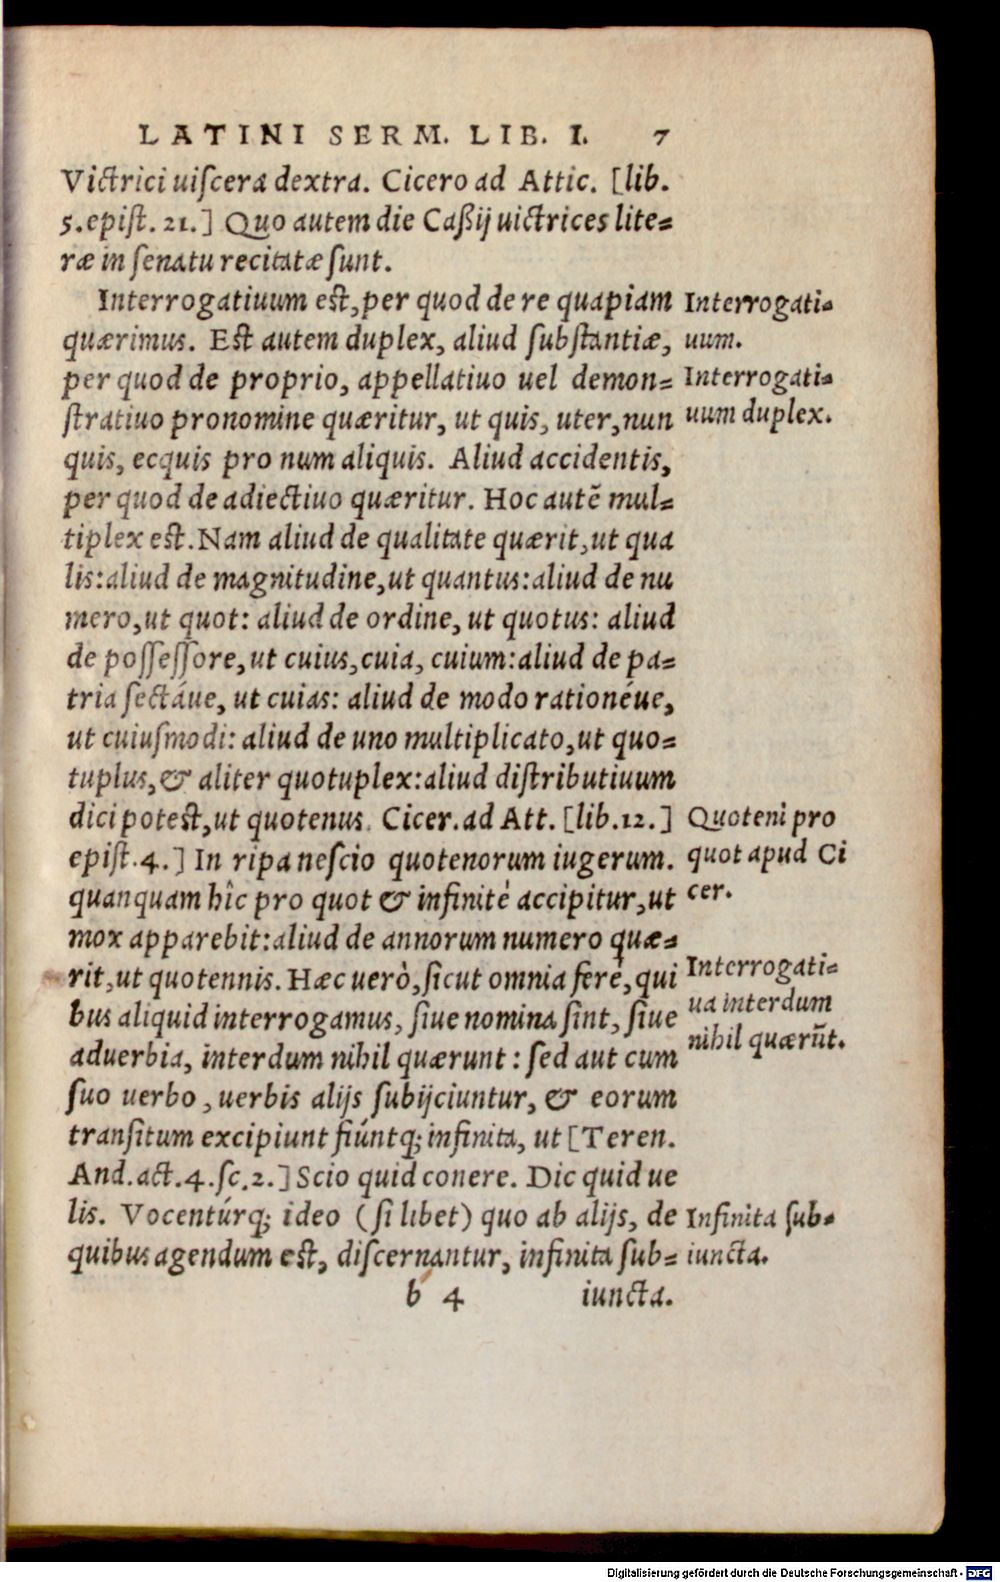 LATINI SERM. LIB. I. 7
Victrici uiſcera dextra. Cicero ad Attic. [lib.
5. epiſt. 21.] Quo autem die Caßij uictrices lite=
ræ in ſenatu recitatæ ſunt.
Interrogatiuum est, per quod de re quapiam
quærimus. Est autem duplex, aliud ſubſtantiæ,
per quod de proprio, appellatiuo uel demon=
ſtratiuo pronomine quæritur, ut quis, uter, nun
quis, ecquis pro num aliquis. Aliud accidentis,
per quod de adiectiuo quæritur. Hoc autē mul=
tiplex est. Nam aliud de qualitate quærit, ut qua
lis: aliud de magnitudine, ut quantus: aliud de nu
mero, ut quot: aliud de ordine, ut quotus: aliud
de poſſeſſore, ut cuius, cuia, cuium: aliud de pa=
tria ſectáue, ut cuias: aliud de modo rationéue,
ut cuiuſmodi: aliud de uno multiplicato, ut quo=
tuplus, & aliter quotuplex: aliud diſtributiuum
dici potest, ut quotenus. Cicer. ad Att. [lib. 12.]
epiſt. 4.] In ripa neſcio quotenorum iugerum.
quanquam hîc pro quot & infinitè accipitur, ut
mox apparebit: aliud de annorum numero quæ=
rit, ut quotennis. Hæc uerò, ſicut omnia ferè, qui
bus aliquid interrogamus, ſiue nomina ſint, ſiue
aduerbia, interdum nihil quærunt: ſed aut cum
ſuo uerbo, uerbis alijs ſubijciuntur, & eorum
tranſitum excipiunt fiúntq; infinita, ut [Teren.
And. act. 4. ſc. 2.] Scio quid conere. Dic quid ue
lis. Vocentúrq; ideo (ſi libet) quo ab alijs, de
quibus agendum est, diſcernantur, infinita ſub=
b 4 iuncta.
Interrogati=
uum.
Interrogati=
uum duplex.
Quoteni pro
quot apud Ci
cer.
Interrogati=
ua interdum
nihil quærūt.
Infinita ſub=
iuncta.
Digitalisierung gefördert durch die Deutsche Forschungsgemeinschaft - DFG